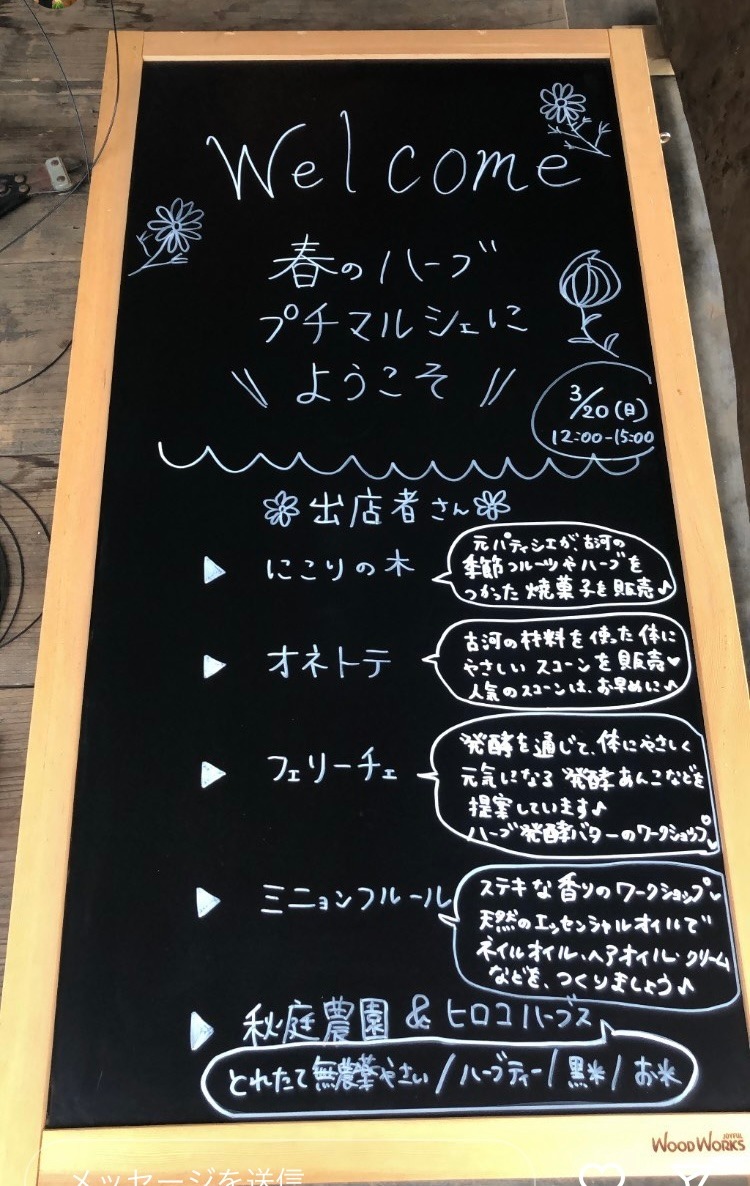 Welcome
春のハーブ
プチマルシェに
\\ ようこそ //
3/20(日)
12:00-15:00
出店者さん
▶ にこりの木
元パティシエが、古河の
季節フルーツやハーブを
つかった焼菓子を販売♪
▶ オネトテ
古河の材料を使った体に
やさしいスコーンを販売♥
人気のスコーンは、お早めに♪
▶ フェリーチェ
発酵を通じて、体にやさしく
元気になる発酵あんこなどを
提案しています♪
ハーブ発酵バターのワークショップ♥
▶ ミニョンフルール
ステキな香りのワークショップ♥
天然のエッセンシャルオイルで
ネイルオイル、ヘアオイル・クリーム
などを、つくりましょう♪
▶ 秋庭農園 & ヒロコハーブス
とれたて無農薬やさい/ハーブティー/黒米/お米
JOYFUL
WOODWORKS
メッセージを送信